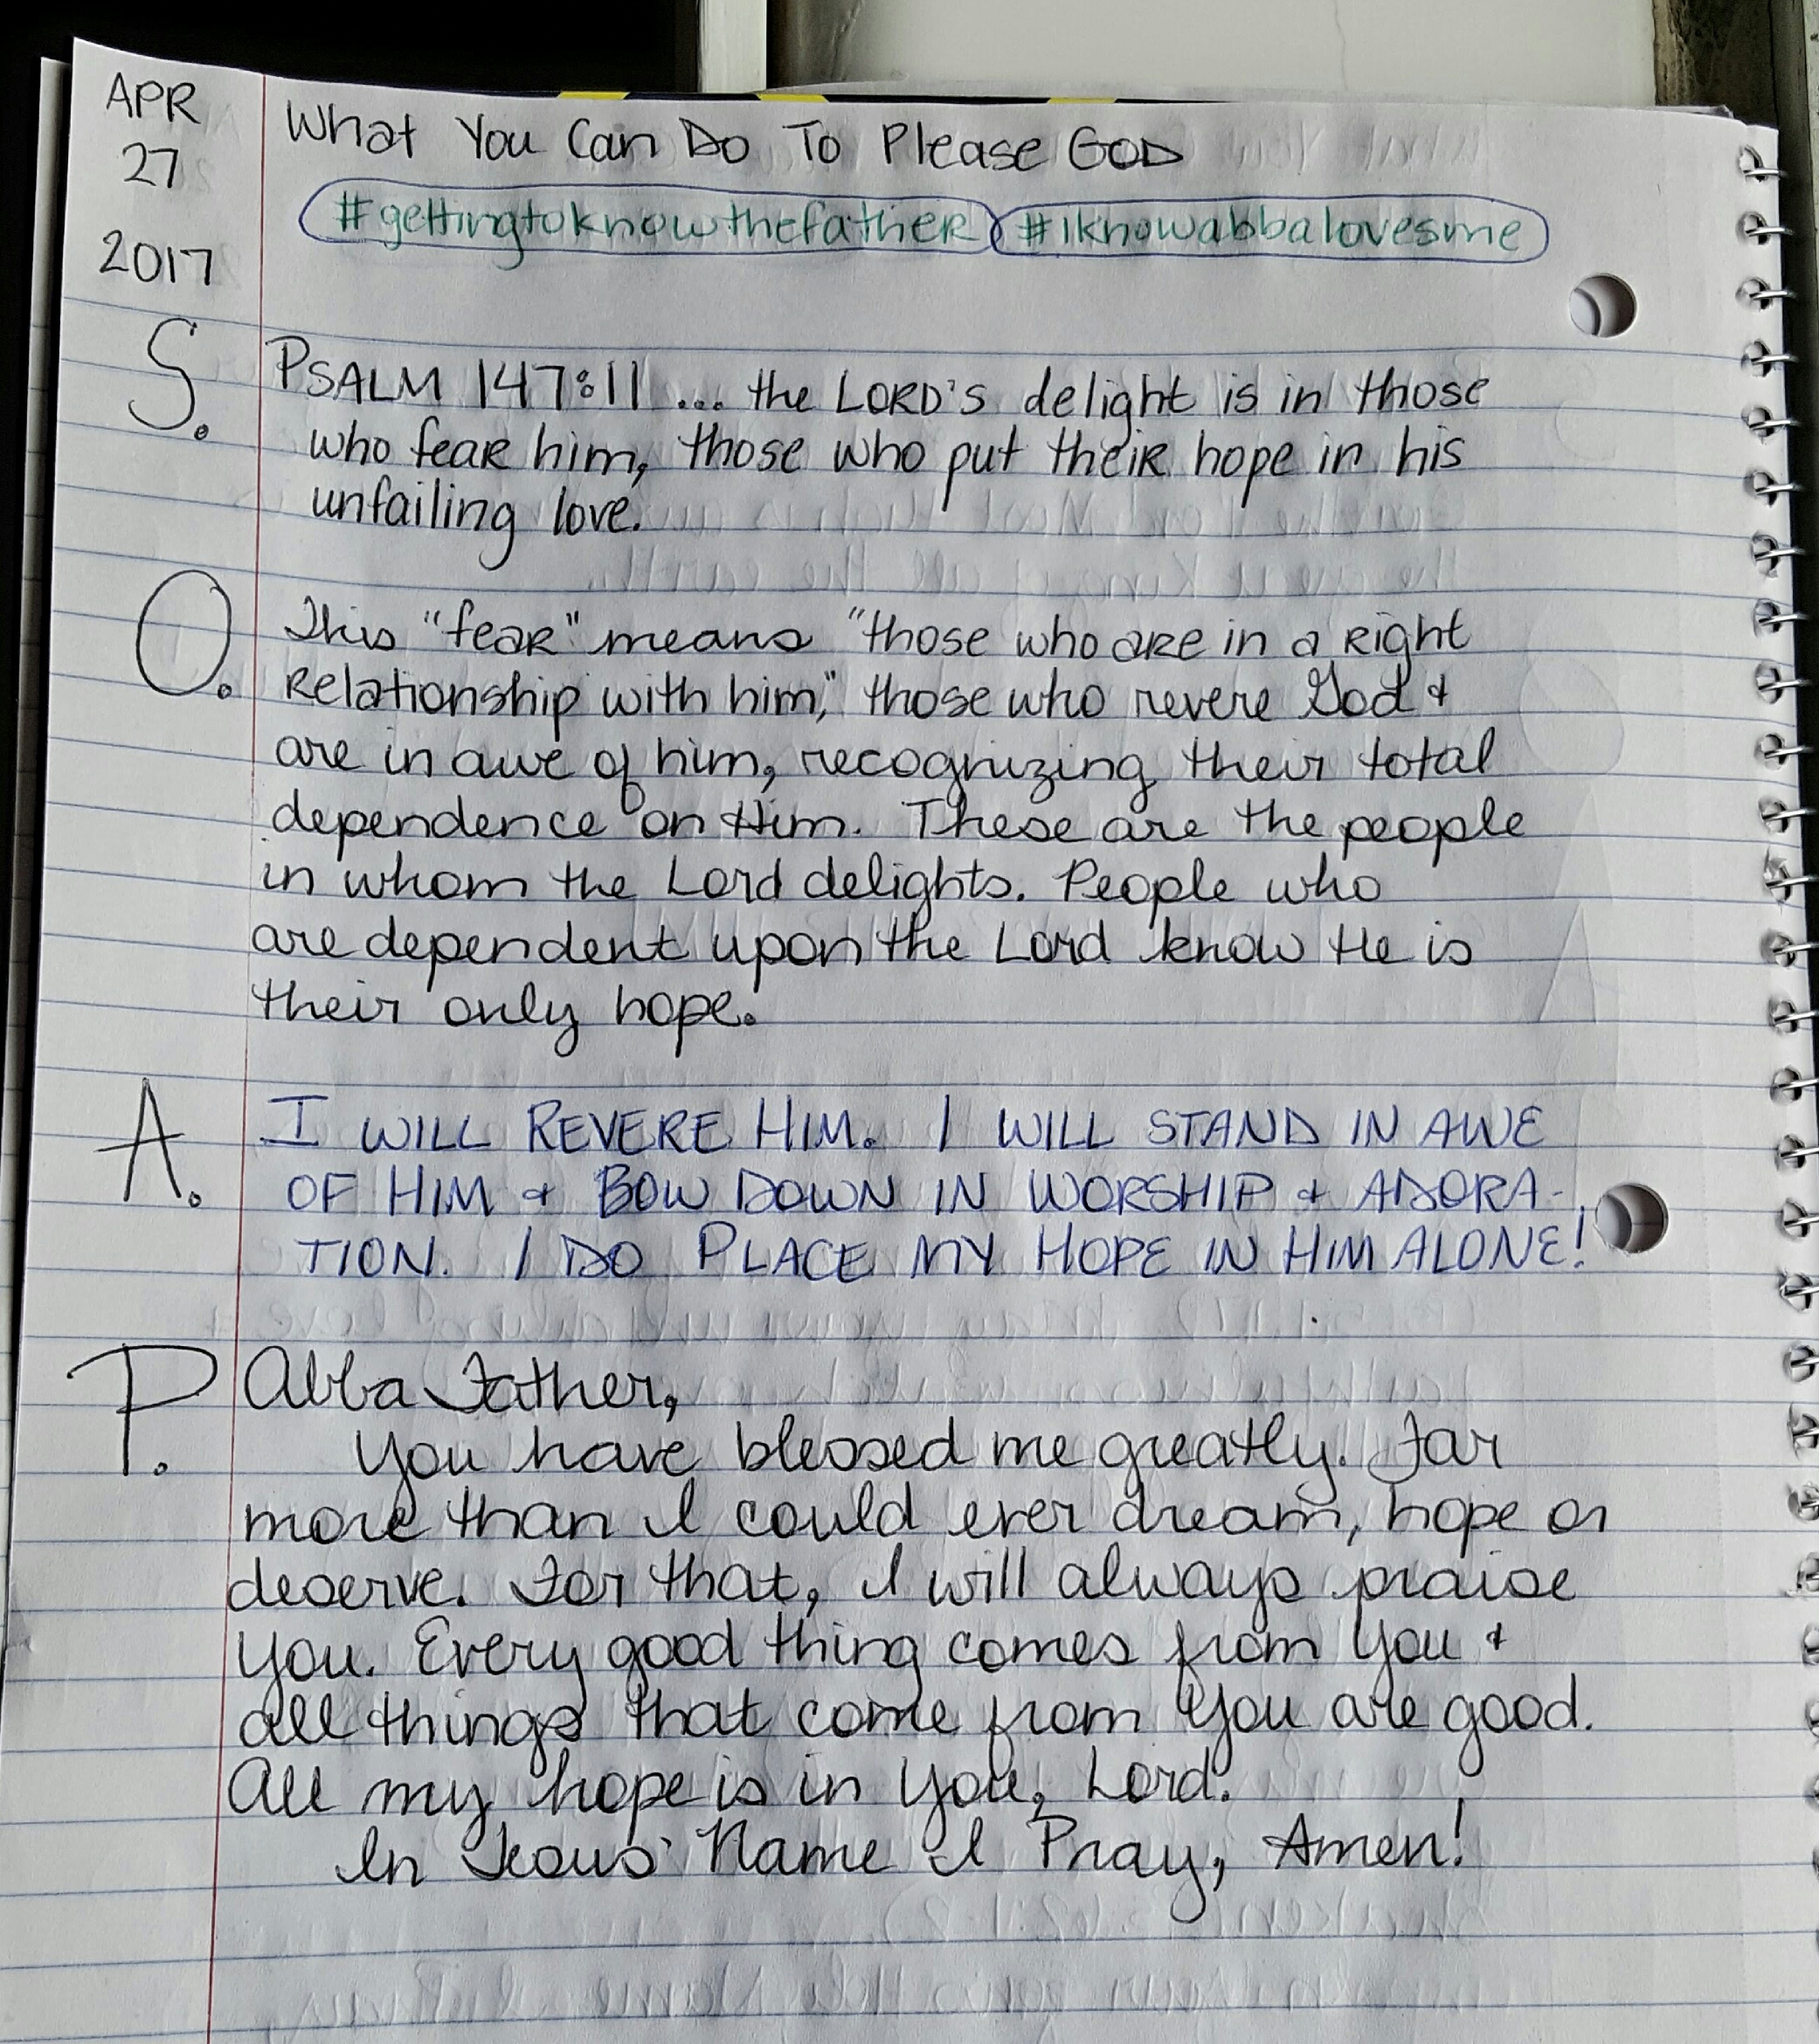 APR
27
2017
What You Can Do To Please GOD
#gettingtoknowthefather #iknowabbalovesme
S. PSALM 147:11 ... the LORD'S delight is in those
who fear him, those who put their hope in his
unfailing love.
O. This "fear" means "those who are in a right
relationship with him," those who revere God &
are in awe of him, recognizing their total
dependence on Him. These are the people
in whom the Lord delights. People who
are dependent upon the Lord know He is
their only hope.
A. I WILL REVERE HIM. I WILL STAND IN AWE
OF HIM & BOW DOWN IN WORSHIP & ADORA-
TION. I DO PLACE MY HOPE IN HIM ALONE!
P. Abba Father,
You have blessed me greatly. Far
more than I could ever dream, hope or
deserve. For that, I will always praise
you. Every good thing comes from You &
all things that come from You are good.
All my hope is in You, Lord.
In Jesus' Name I Pray, Amen!